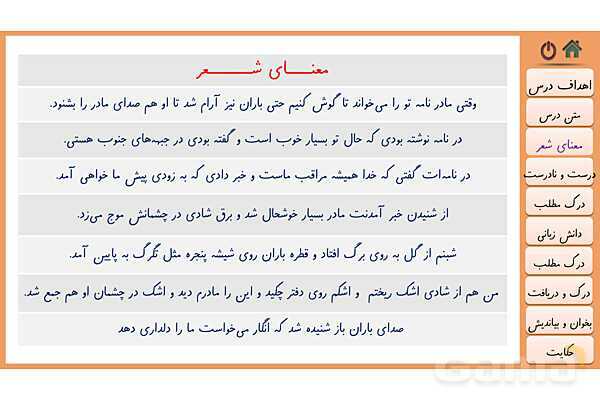 معنای شعر
وقتی مادر نامه تو را می‌خواند تا گوش کنیم حتی باران نیز آرام شد تا او هم صدای مادر را بشنود.
در نامه نوشته بودی که حال تو بسیار خوب است و گفته بودی در جبهه‌های جنوب هستی.
در نامه‌ات گفتی که خدا همیشه مراقب ماست و خبر دادی که به زودی پیش ما خواهی آمد.
از شنیدن خبر آمدنت مادر بسیار خوشحال شد و برق شادی در چشمانش موج می‌زد.
شبنم از گل به روی برگ افتاد و قطره باران روی شیشه پنجره مثل تگرگ به پایین آمد.
من هم از شادی اشک ریختم و اشکم روی دفتر چکید و این را مادرم دید و اشک در چشمان او هم جمع شد.
صدای باران باز شنیده شد که انگار می‌خواست ما را دلداری دهد
اهداف درس
متن درس
معنای شعر
درست و نادرست
درک مطلب
دانش زبانی
درک مطلب
درک و دریافت
بخوان و بیاندیش
حکایت
Gama